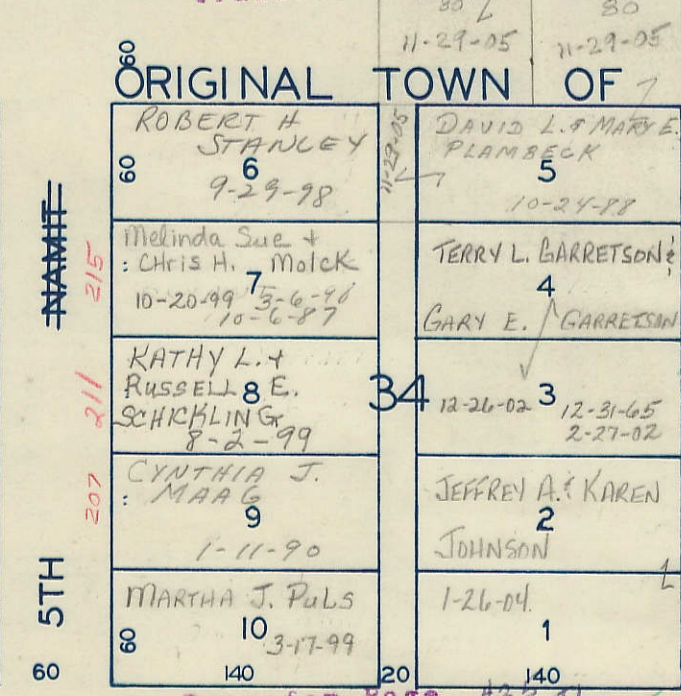 80
80
11-29-05
11-29-05
60
ORIGINAL TOWN OF
ROBERT H
STANLEY
60
6
9-29-98
11-29-05
DAVID L. & MARY E.
PLAMBECK
5
10-24-88
NAMIT
215
Melinda Sue +
: CHRIS H. Molck
7
10-20-99 3-6-90
10-6-87
TERRY L. GARRETSON &
4
GARY E. GARRETSON
211
KATHY L. +
RUSSELL E.
8
SCHICKLING
8-2-99
34
12-26-02
3
12-31-65
2-27-02
207
CYNTHIA J.
: MAAG
9
1-11-90
JEFFREY A. & KAREN
2
JOHNSON
5TH
MARTHA J. PULS
60
10
3-17-99
1-26-04.
1
60
140
20
140